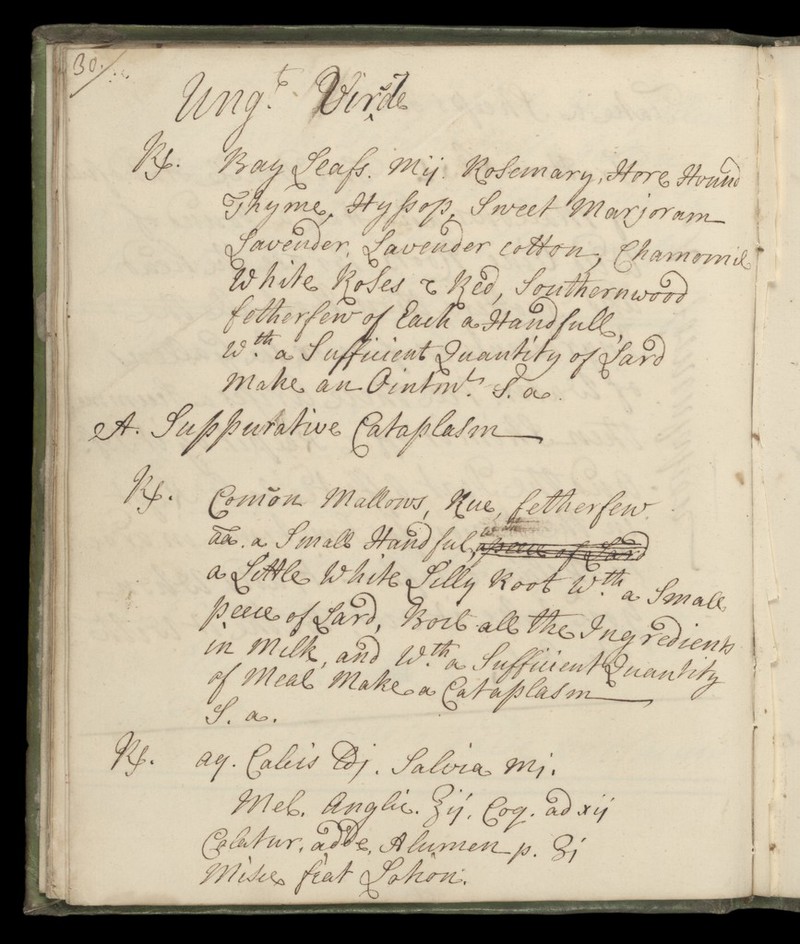 30.
Ung.t Virde
Rx. Bay Leafs. Mij. Rosemary, Hore Hound
Thyme, Hyssop, Sweet Marjoram
Lavender, Lavender cotton, Chamomil
White Roses & Red, Southernwood
fetherfew of Each a Handfull,
W.th a Sufficient Quantity of Lard
Make an Ointmt. S. a.
A. Suppurative Cataplasm
Rx. Comōn Mallows, Rue, fetherfew
āā. a Small Handful, a peece of Lard
a Little White Lilly Root W.th a Small
peece of Lard, Boil all the Ingredients
in Milk, and W.th a Sufficient Quantity
of Meal Make a Cataplasm
S. a.
Rx. aq. Calcis ℔j. Salvia Mj.
Mel. Anglic. ℥ij. Coq. ad xij
Colatur, adde, Alumen p. ʒj
Misce fiat Lotion.